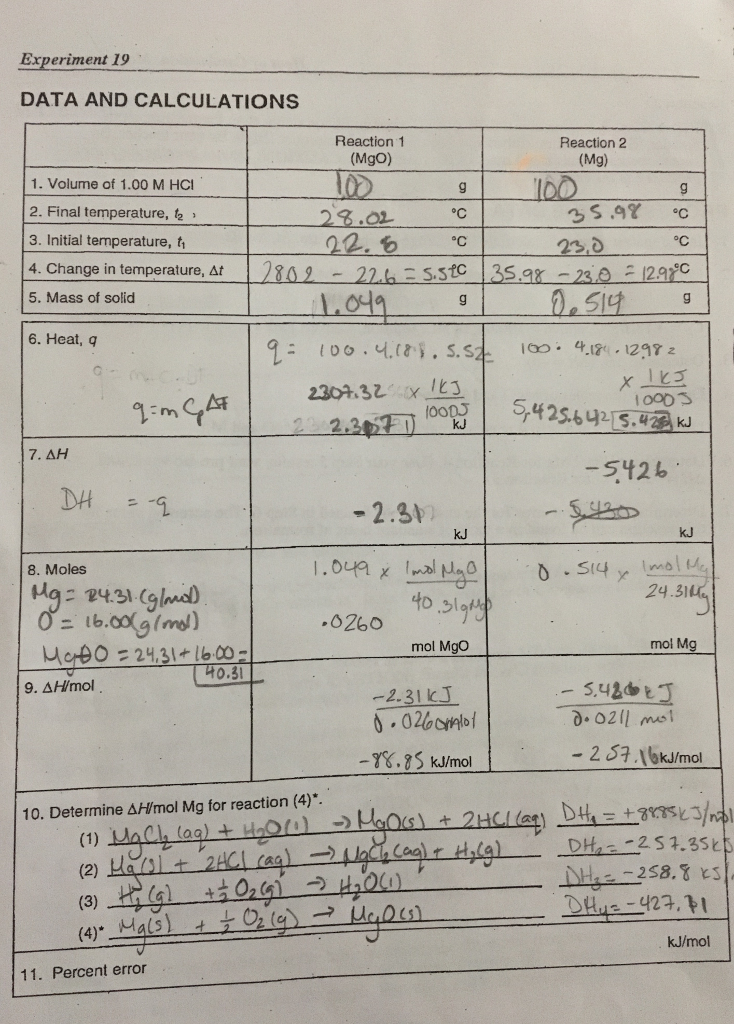 Experiment 19
DATA AND CALCULATIONS
Reaction 1 (MgO)
Reaction 2 (Mg)
1. Volume of 1.00 M HCl 100 g 100 g
2. Final temperature, t₂, 28.02 °C 35.98 °C
3. Initial temperature, t₁ 22.6 °C 23.0 °C
4. Change in temperature, Δt 2802 - 22.6 = 5.52°C 35.98 - 23.0 = 12.98°C
5. Mass of solid 1.049 g 0.514 g
6. Heat, q
q=mCₚΔT
q = 100 . 4.18 . 5.52
2307.32 x 1KJ / 1000J
2.307 kJ
100 . 4.184 . 12.98 =
x 1KJ / 1000J
5,425.642 5.426 kJ
7. ΔH
DH = -q
-2.31 kJ
-5.426
-5.430 kJ
8. Moles
Mg = 24.31 (g/mol)
O = 16.00(g/mol)
MgO = 24.31 + 16.00 =
40.31
1.049 x 1mol MgO / 40.31g MgO
.0260
mol MgO
0.514 x 1mol Mg / 24.31Mg
mol Mg
9. ΔH/mol.
-2.31 KJ / 0.0260 mol
-88.85 kJ/mol
-5.426 KJ / 0.0211 mol
-257.16 kJ/mol
10. Determine ΔH/mol Mg for reaction (4)*.
(1) MgCl₂ (aq) + H₂O(l) → MgO(s) + 2HCl(aq) DH₁ = +88.85KJ/mol
(2) Mg(s) + 2HCl (aq) → MgCl₂(aq) + H₂(g) DH₂ = -257.35KJ
(3) H₂(g) + ½ O₂(g) → H₂O(l) DH₃ = -258.8 KJ/
(4)* Mg(s) + ½ O₂(g) → MgO(s) DH₄ = -427.71
kJ/mol
11. Percent error